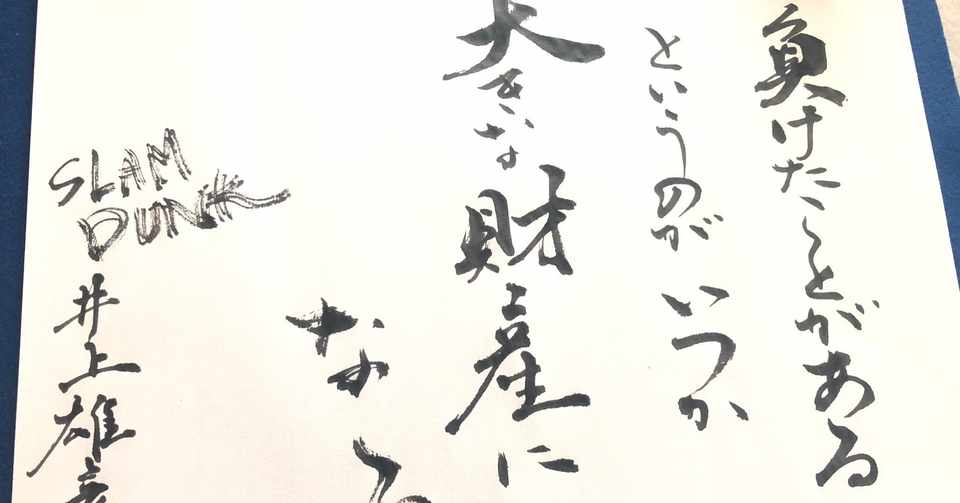 負けたことがある
というのがいつか
大きな財産に
なる
SLAM
DUNK
井上雄彦